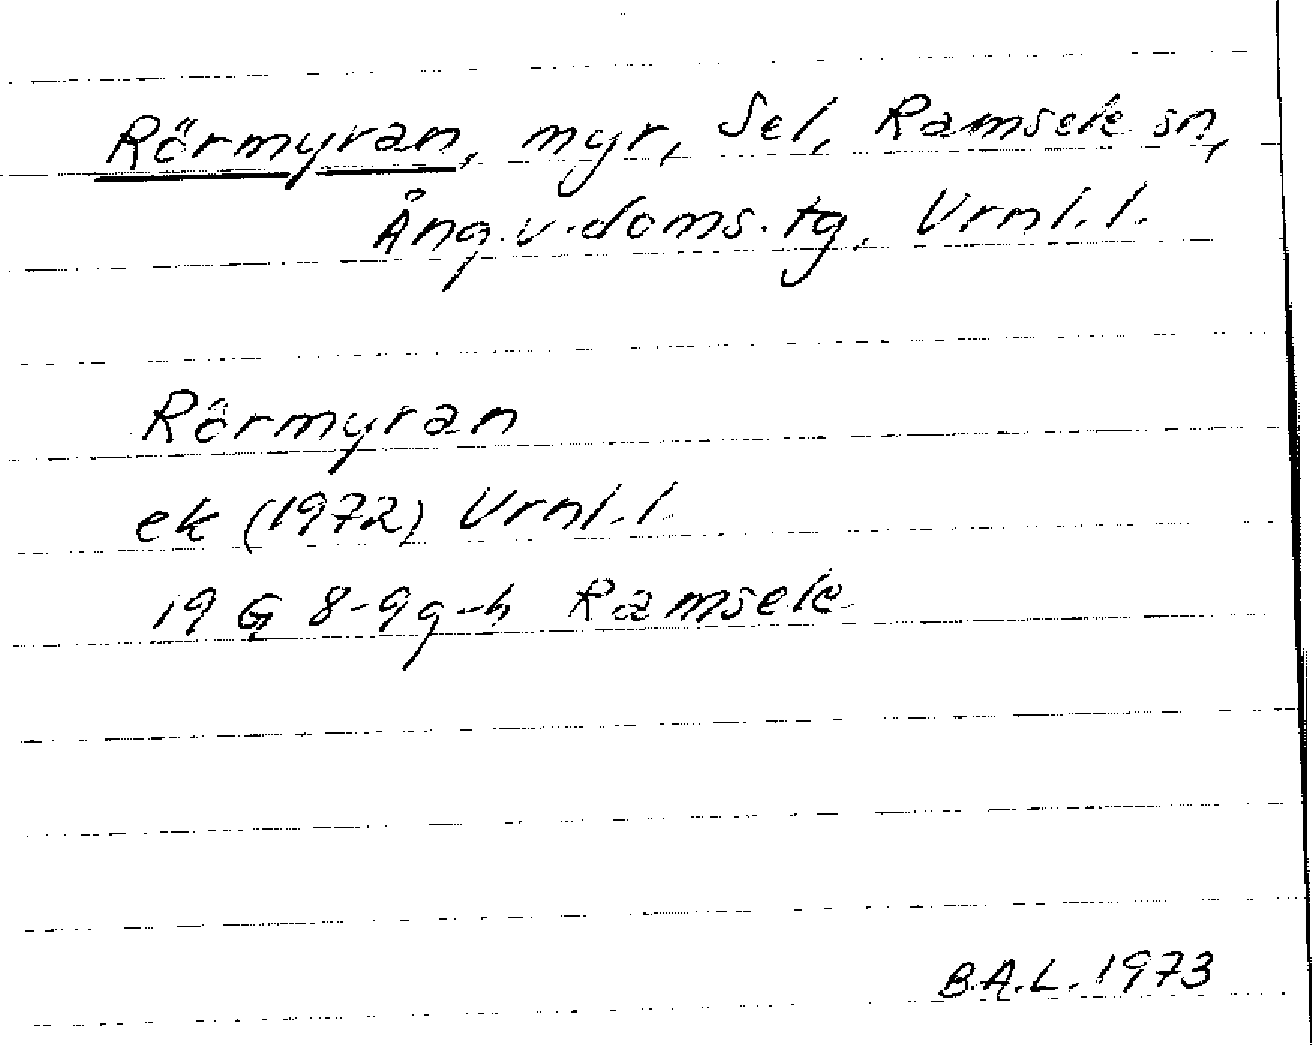 Rörmyran, myr, Sel, Ramsele sn,
Ång.v.doms.tg, Vrnl.l.
Rörmyran
ek (1972) Vrnl.l.
19 G 8-9g-h Ramsele
B.A.L. 1973